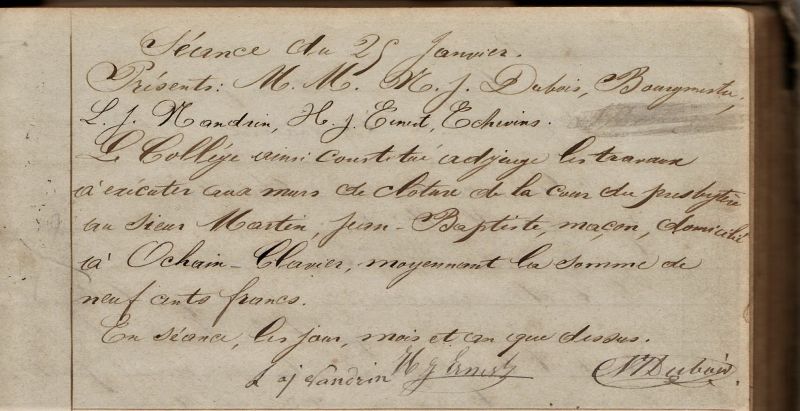 Séance du 25 Janvier.
Présents: M. M. N. J. Dubois, Bourgmestre,
L. J. Nandrin, H. J. Ernest, Echevins.
Le Collège ainsi constitué adjuge les travaux
à exécuter aux murs de cloture de la cour du presbytère
au sieur Martin, Jean-Baptiste, maçon, domicilié
à Ochain-Clavier, moyennant la somme de
neuf cents francs.
En séance, les jour, mois et an que dessus.
L J Nandrin H J Ernest N J Dubois